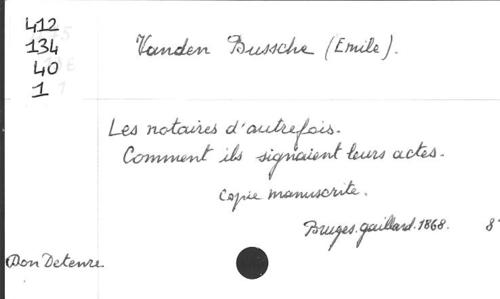 412
134
40
1
Vanden Bussche (Emile).
Les notaires d'autrefois.
Comment ils signaient leurs actes.
Copie manuscrite.
Bruges. gaillard. 1868. 8°
Don Detenre